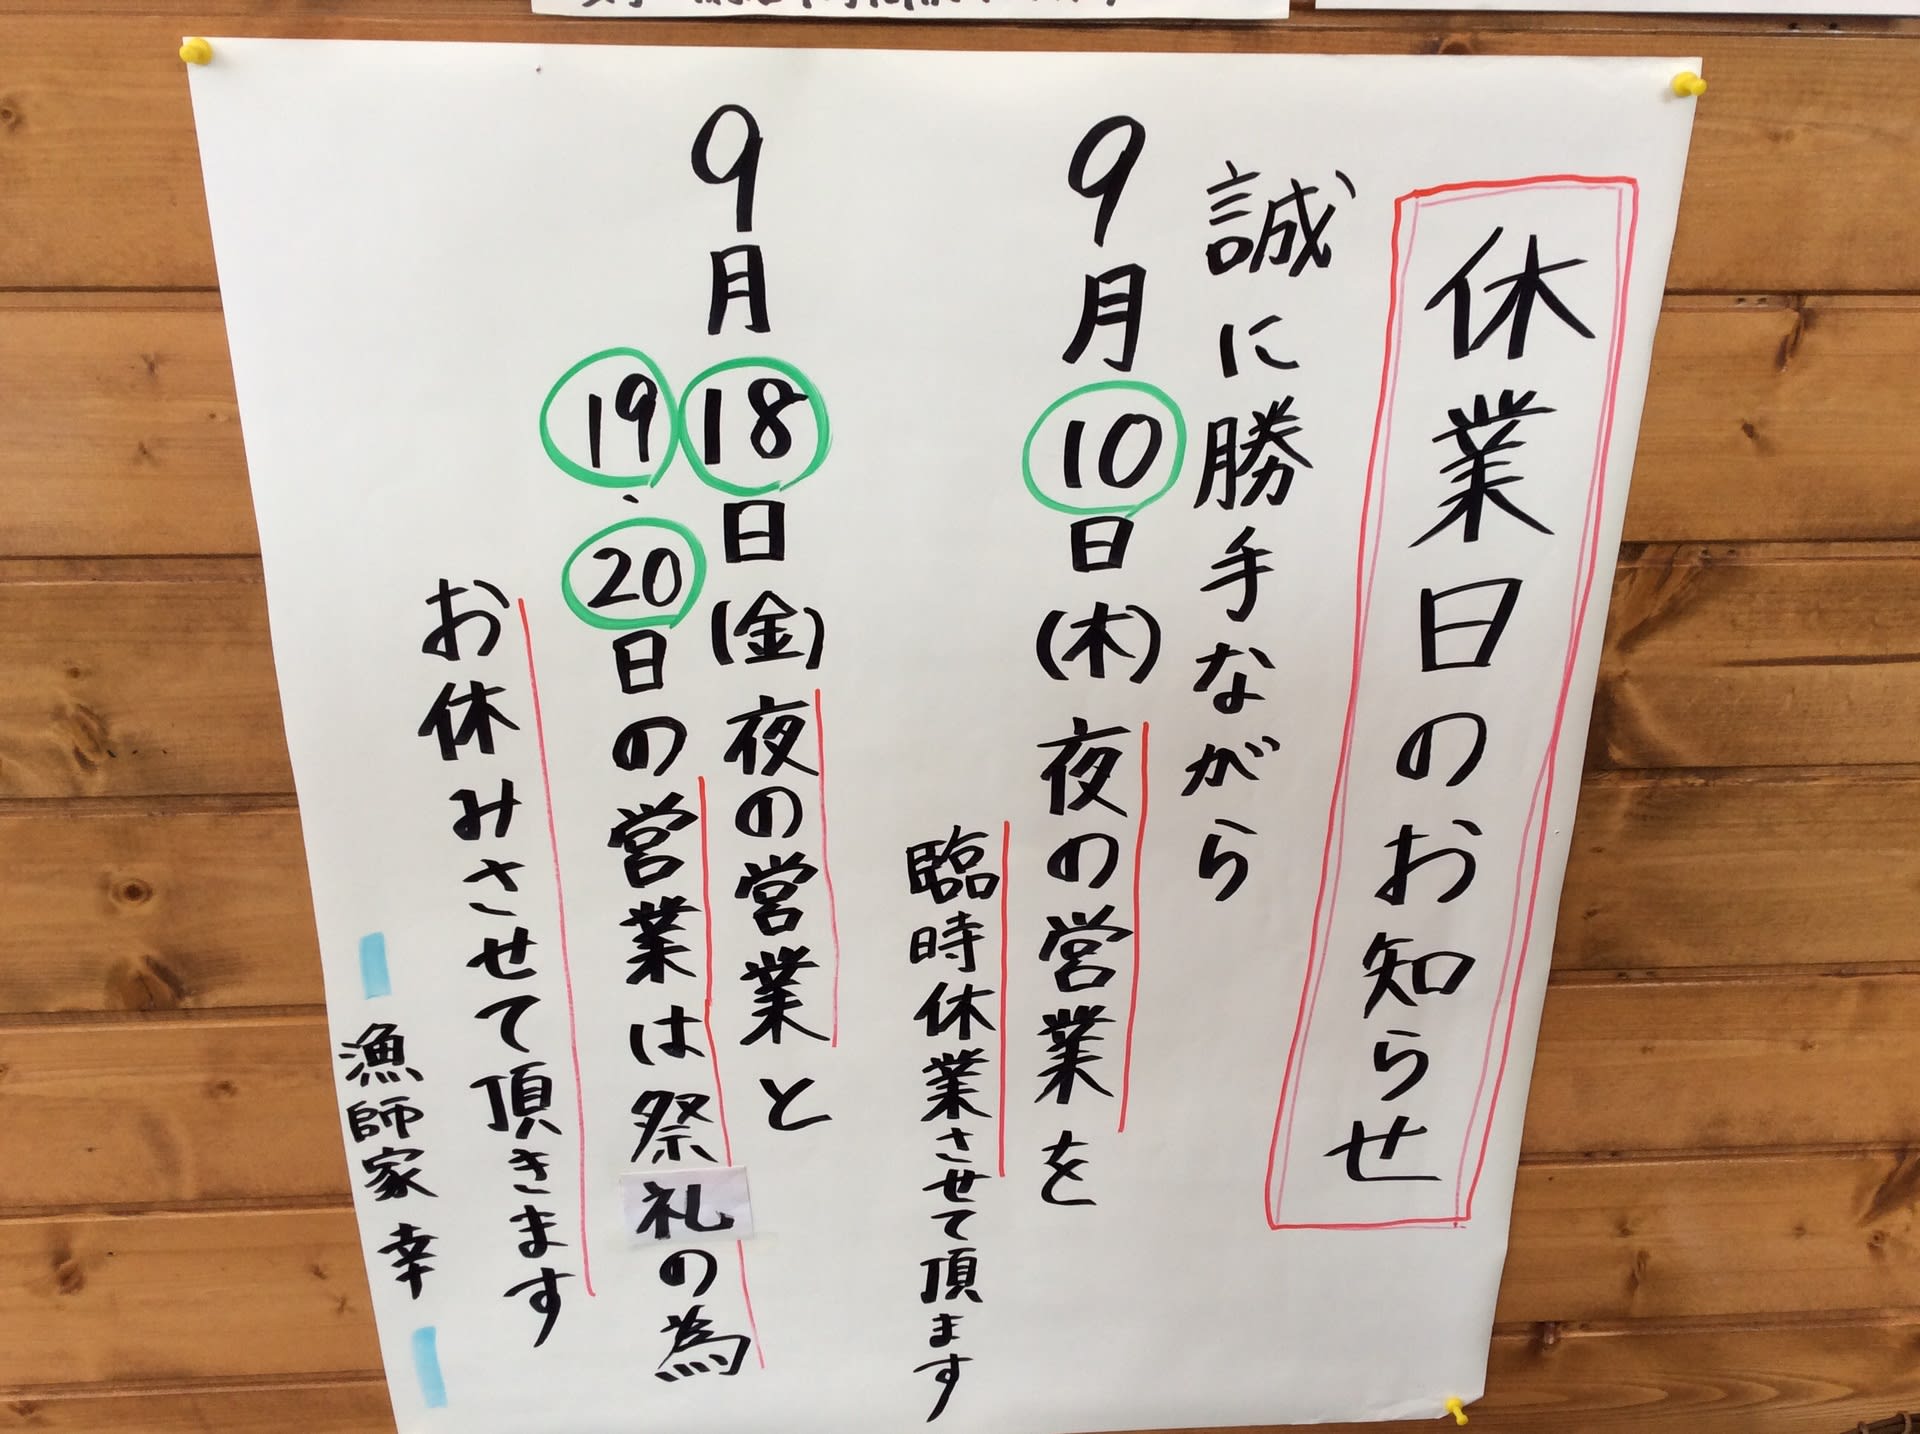 休業日のお知らせ
誠に勝手ながら
9月10日(木)夜の営業を
臨時休業させて頂ます
9月18日(金)夜の営業と
19、20日の営業は祭礼の為
お休みさせて頂きます
漁師家 幸